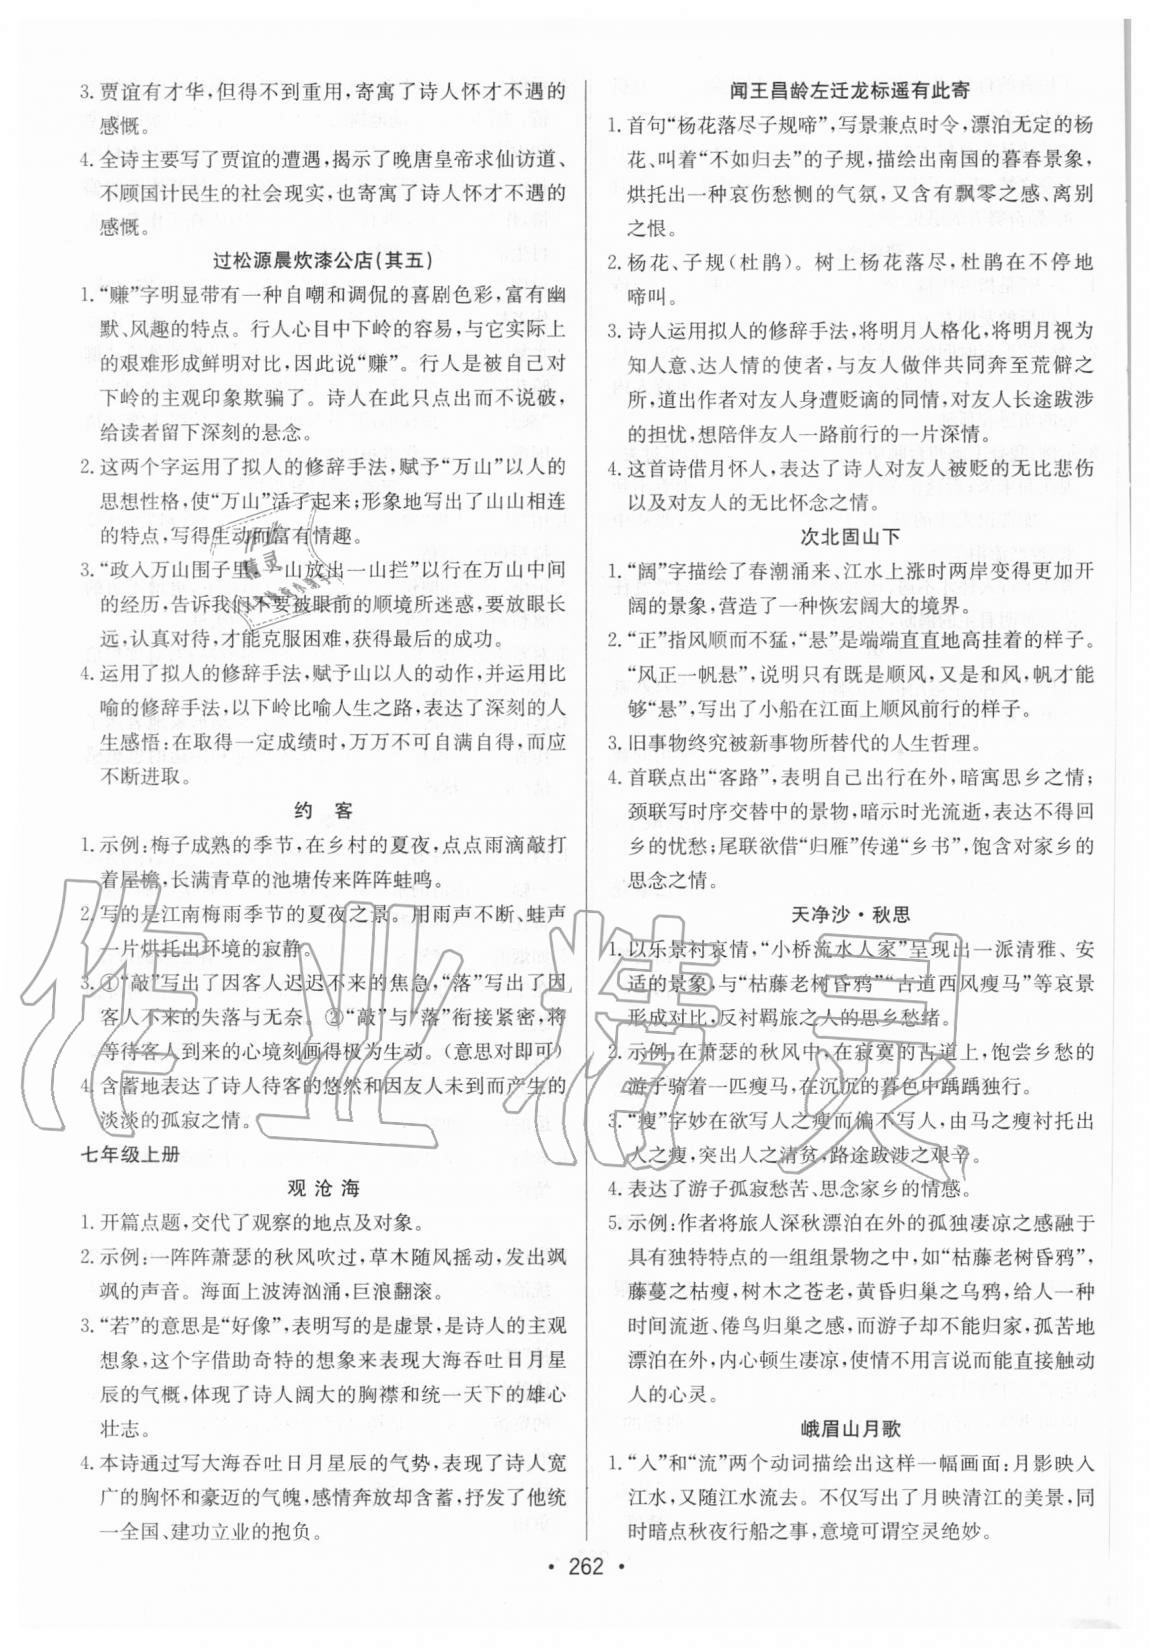 3. 贾谊有才华,但得不到重用,寄寓了诗人怀才不遇的
感慨。
4. 全诗主要写了贾谊的遭遇,揭示了晚唐皇帝求仙访道、
不顾国计民生的社会现实,也寄寓了诗人怀才不遇的
感慨。
过松源晨炊漆公店(其五)
1. “赚”字明显带有一种自嘲和调侃的喜剧色彩,富有幽
默、风趣的特点。行人心目中下岭的容易,与它实际上
的艰难形成鲜明对比,因此说“赚”。行人是被自己对
下岭的主观印象欺骗了。诗人在此只点出而不说破,
给读者留下深刻的悬念。
2. 这两个字运用了拟人的修辞手法,赋予“万山”以人的
思想性格,使“万山”活了起来;形象地写出了山山相连
的特点,写得生动而富有情趣。
3. “政入万山围子里,一山放出一山拦”以行在万山中间
的经历,告诉我们不要被眼前的顺境所迷惑,要放眼长
远,认真对待,才能克服困难,获得最后的成功。
4. 运用了拟人的修辞手法,赋予山以人的动作,并运用比
喻的修辞手法,以下岭比喻人生之路,表达了深刻的人
生感悟:在取得一定成绩时,万万不可自满自得,而应
不断进取。
约 客
1. 示例:梅子成熟的季节,在乡村的夏夜,点点雨滴敲打
着屋檐,长满青草的池塘传来阵阵蛙鸣。
2. 写的是江南梅雨季节的夏夜之景。用雨声不断、蛙声
一片烘托出环境的寂静。
3. ①“敲”写出了因客人迟迟不来的焦急,“落”写出了因
客人不来的失落与无奈。②“敲”与“落”衔接紧密,将
等待客人到来的心境刻画得极为生动。(意思对即可)
4. 含蓄地表达了诗人待客的悠然和因友人未到而产生的
淡淡的孤寂之情。
七年级上册
观 沧 海
1. 开篇点题,交代了观察的地点及对象。
2. 示例:一阵阵萧瑟的秋风吹过,草木随风摇动,发出飒
飒的声音。海面上波涛汹涌,巨浪翻滚。
3. “若”的意思是“好像”,表明写的是虚景,是诗人的主观
想象,这个字借助奇特的想象来表现大海吞吐日月星
辰的气概,体现了诗人阔大的胸襟和统一天下的雄心
壮志。
4. 本诗通过写大海吞吐日月星辰的气势,表现了诗人宽
广的胸怀和豪迈的气魄,感情奔放却含蓄,抒发了他统
一全国、建功立业的抱负。
闻王昌龄左迁龙标遥有此寄
1. 首句“杨花落尽子规啼”,写景兼点时令,漂泊无定的杨
花、叫着“不如归去”的子规,描绘出南国的暮春景象,
烘托出一种哀伤愁恻的气氛,又含有飘零之感、离别
之恨。
2. 杨花、子规(杜鹃)。树上杨花落尽,杜鹃在不停地
啼叫。
3. 诗人运用拟人的修辞手法,将明月人格化,将明月视为
知人意、达人情的使者,与友人做伴共同奔至荒僻之
所,道出作者对友人身遭贬谪的同情,对友人长途跋涉
的担忧,想陪伴友人一路前行的一片深情。
4. 这首诗借月怀人,表达了诗人对友人被贬的无比悲伤
以及对友人的无比怀念之情。
次北固山下
1. “阔”字描绘了春潮涌来、江水上涨时两岸变得更加开
阔的景象,营造了一种恢宏阔大的境界。
2. “正”指风顺而不猛,“悬”是端端直直地高挂着的样子。
“风正一帆悬”,说明只有既是顺风,又是和风,帆才能
够“悬”,写出了小船在江面上顺风前行的样子。
3. 旧事物终究被新事物所替代的人生哲理。
4. 首联点出“客路”,表明自己出行在外,暗寓思乡之情;
颈联写时序交替中的景物,暗示时光流逝,蕴含着思乡
的忧愁;尾联欲借“归雁”传递“乡书”,饱含对家乡的
思念之情。
天净沙·秋思
1. 以乐景衬哀情,“小桥流水人家”呈现出一派清雅、安
适的景象,与“枯藤老树昏鸦”“古道西风瘦马”等哀景
形成对比,反衬羁旅之人的思乡愁绪。
2. 示例:在萧瑟的秋风中,在寂寞的古道上,饱尝乡愁的
游子骑着一匹瘦马,在沉沉的暮色中踽踽独行。
3. “瘦”字妙在欲写人之瘦而偏不写人,由马之瘦衬托出
人之瘦,突出人之清贫,路途跋涉之艰辛。
4. 表达了游子孤寂愁苦、思念家乡的情感。
5. 示例:作者将旅人深秋漂泊在外的孤独凄凉之感融于
具有独特特点的一组组景物之中,如“枯藤老树昏鸦”,
藤蔓之枯瘦,树木之苍老,黄昏归巢之乌鸦,给人一种
时间流逝、倦鸟归巢之感,而游子却有家难归,孤苦地
漂泊在外,内心顿生凄凉,使情不用言说而能直接触动
人的心灵。
峨眉山月歌
1. “入”和“流”两个动词描绘出这样一幅画面:月影映入
江水,又随江水流去。不仅写出了月映清江的美景,同
时暗点秋夜行船之事,意境可谓空灵绝妙。
·262·
作业精灵